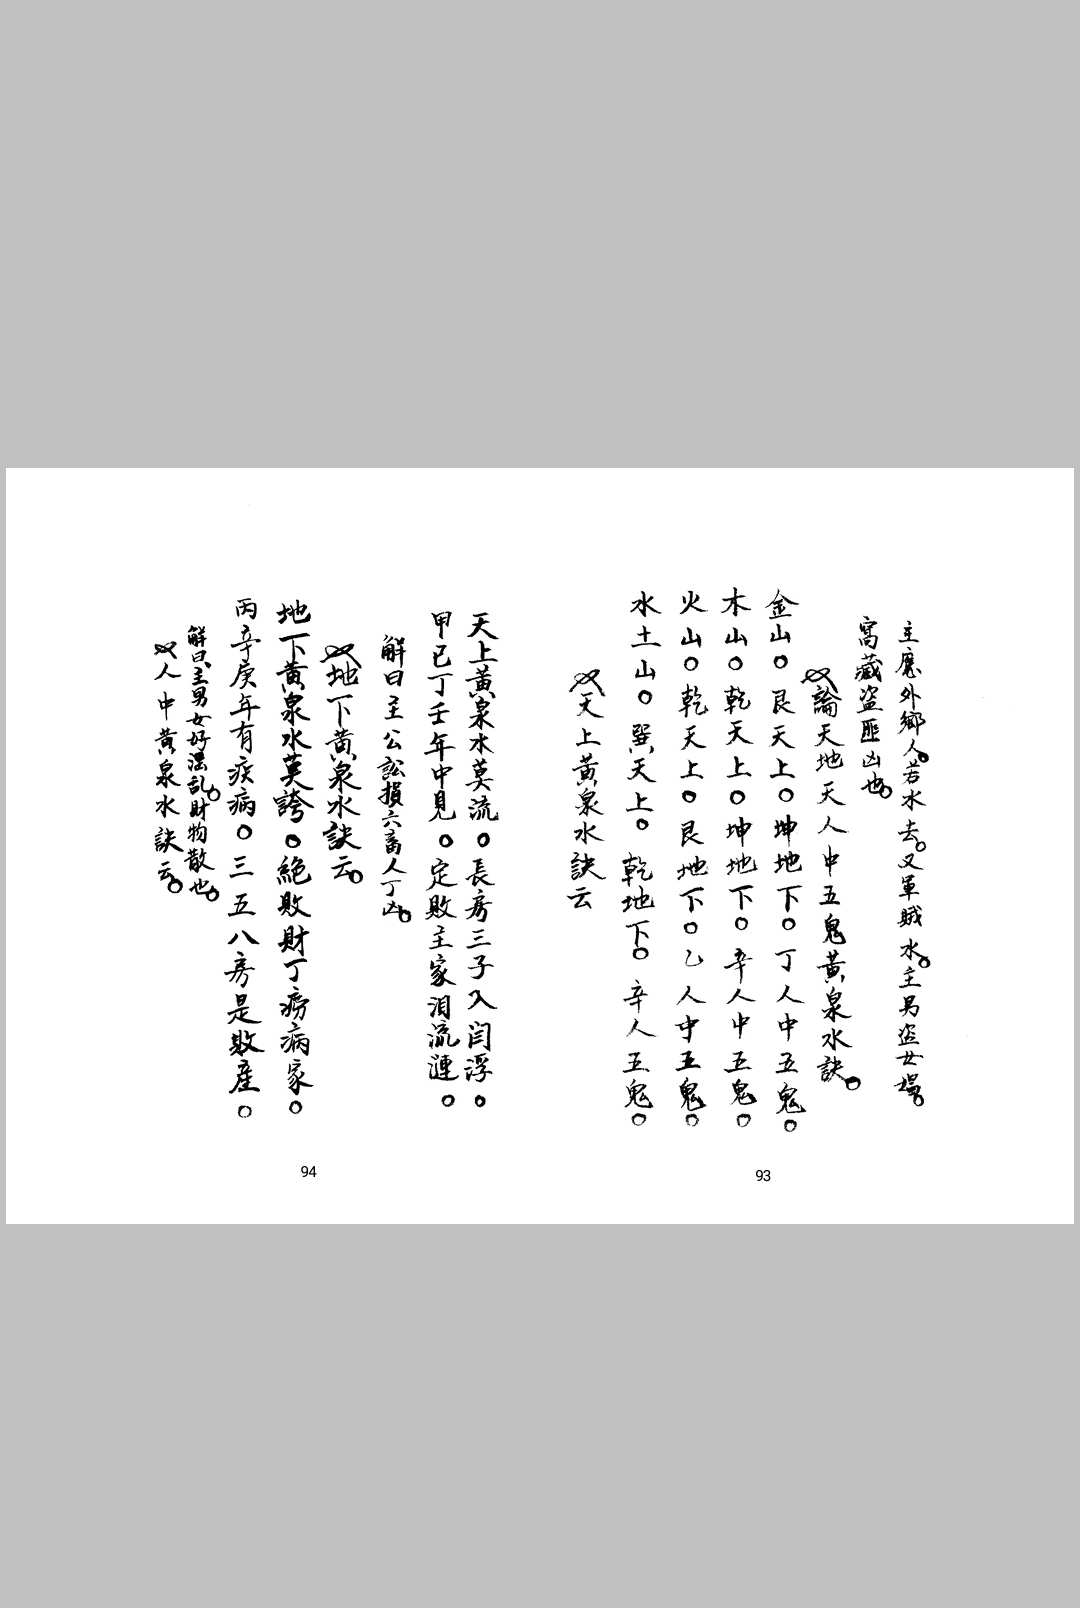 主應外鄉人。若水去。又軍賊水。主男盜女娼。
窩藏盜匪凶也。
論天地天人中五鬼黃泉水訣。
金山。艮天上。坤地下。丁人中五鬼。
木山。乾天上。坤地下。辛人中五鬼。
火山。乾天上。艮地下。乙人中五鬼。
水土山。巽天上。乾地下。辛人五鬼。
天上黃泉水訣云
93
天上黃泉水莫流。長房三子入閆浮。
甲已丁壬年中見。定敗主家泪流漣。
解曰主公訟損六畜人丁凶。
地下黃泉水訣云。
地下黃泉水莫誇。絕敗財丁癆病家。
丙辛庚年有疾病。三五八房是敗產。
解曰主男女好淫乱。財物散也。
人中黃泉水訣云。
94